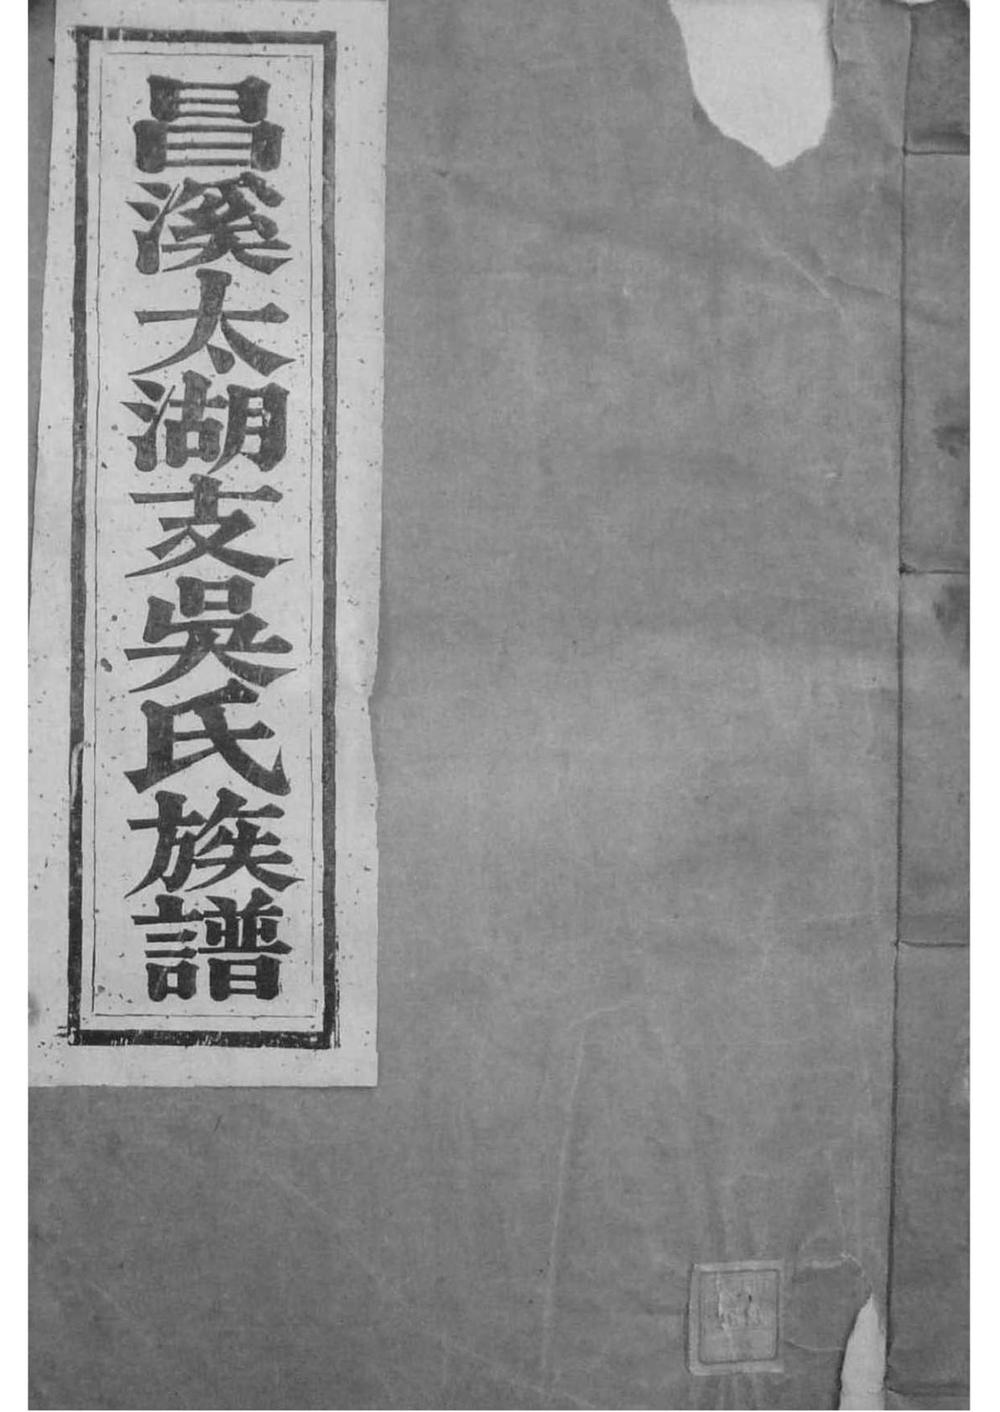 昌溪太湖支吳氏族譜